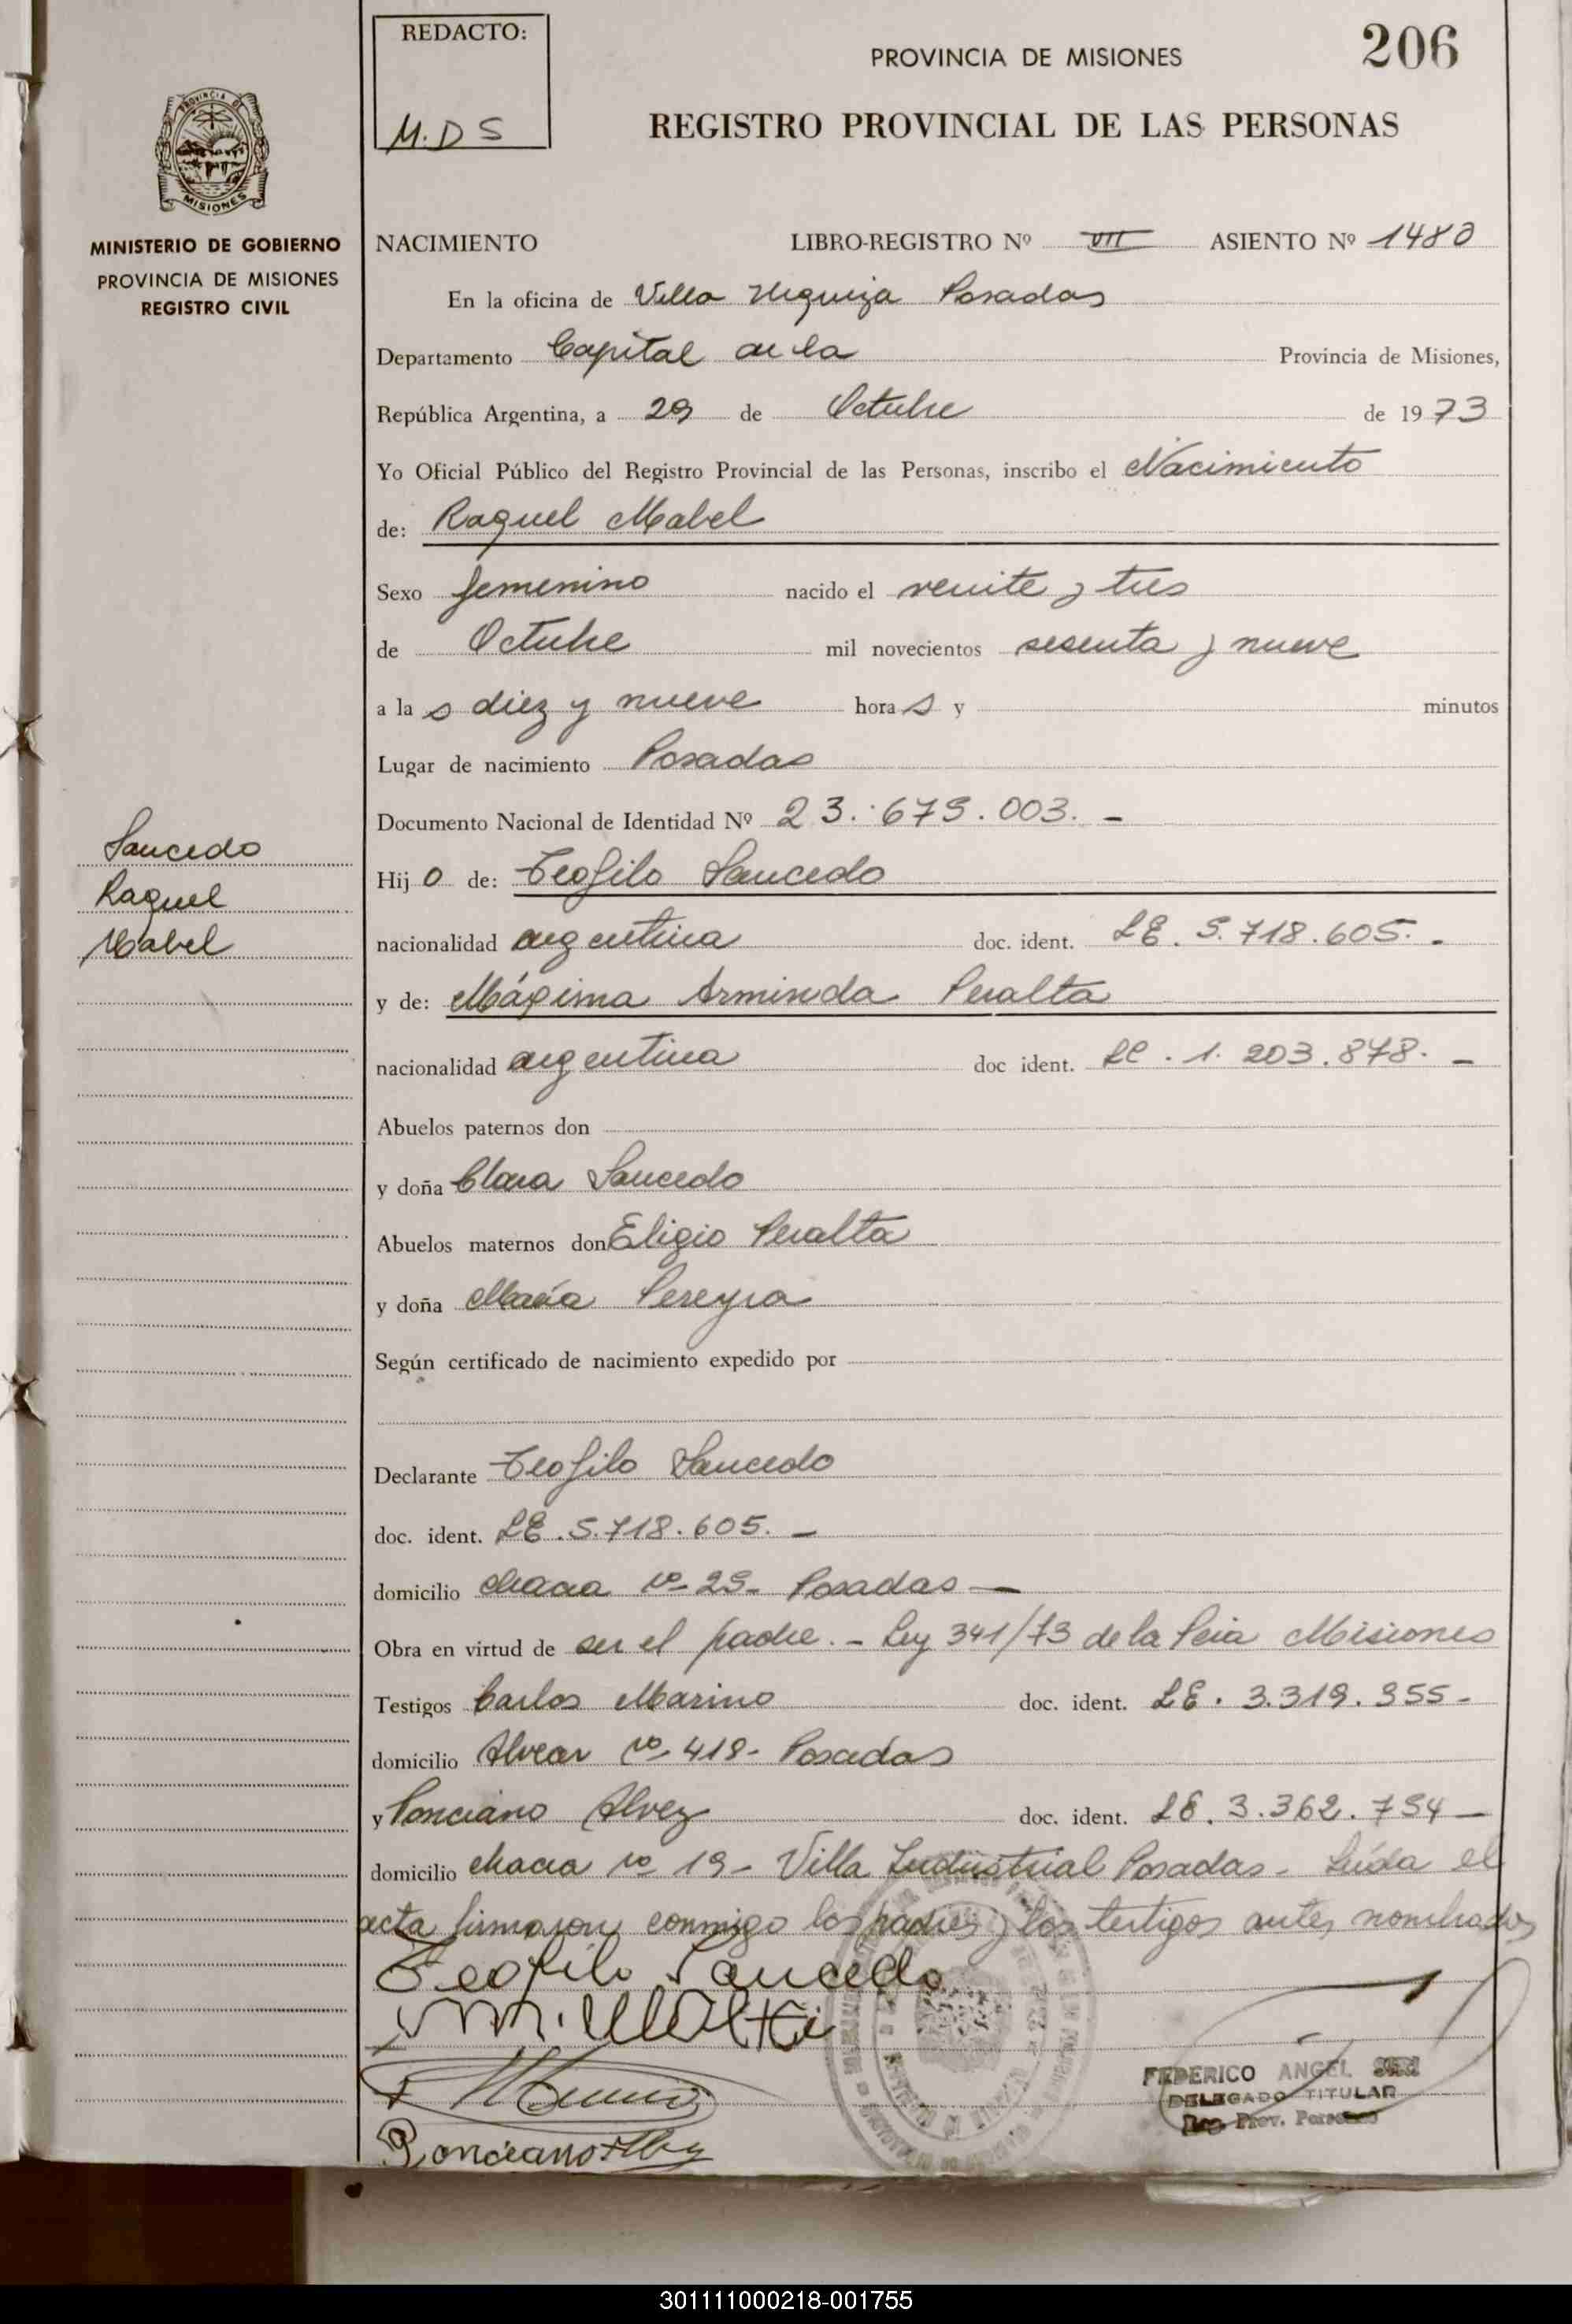 REDACTO:
M.D S
PROVINCIA DE MISIONES
206
REGISTRO PROVINCIAL DE LAS PERSONAS
PROVINCIA DE
MISIONES
MINISTERIO DE GOBIERNO
PROVINCIA DE MISIONES
REGISTRO CIVIL
NACIMIENTO LIBRO-REGISTRO Nº VII ASIENTO Nº 1480
En la oficina de Villa Urquiza Posadas
Departamento Capital de la Provincia de Misiones,
República Argentina, a 29 de Octubre de 1973
Yo Oficial Público del Registro Provincial de las Personas, inscribo el Nacimiento
de: Raquel Mabel
Sexo femenino nacido el veinte y tres
de Octubre mil novecientos sesenta y nueve
a la s diez y nueve hora s y minutos
Lugar de nacimiento Posadas
Documento Nacional de Identidad Nº 23.679.003. -
Saucedo
Raquel
Mabel
Hij o de: Teofilo Saucedo
nacionalidad argentina doc. ident. LE. 5.718.605. -
y de: Máxima Arminda Peralta
nacionalidad argentina doc ident. LC. 1.203.878. -
Abuelos paternos don
y doña Clara Saucedo
Abuelos maternos don Eligio Peralta
y doña María Pereyra
Según certificado de nacimiento expedido por
Declarante Teofilo Saucedo
doc. ident. LE. 5.718.605. -
domicilio chacra Nº 29- Posadas -
Obra en virtud de ser el padre. - Ley 341/73 de la Pcia Misiones
Testigos Carlos Marino doc. ident. LE. 3.319.955-
domicilio Alvear Nº 418- Posadas
y Ponciano Alvez doc. ident. LE. 3.362.794 -
domicilio chacra Nº 19- Villa Industrial Posadas- Leída el
acta firmaron conmigo los padres y los testigos antes nombrados
Teofilo Saucedo
Ponciano Alvez
FEDERICO ANGEL
DELEGADO TITULAR
Reg. Prov. Personas
301111000218-001755